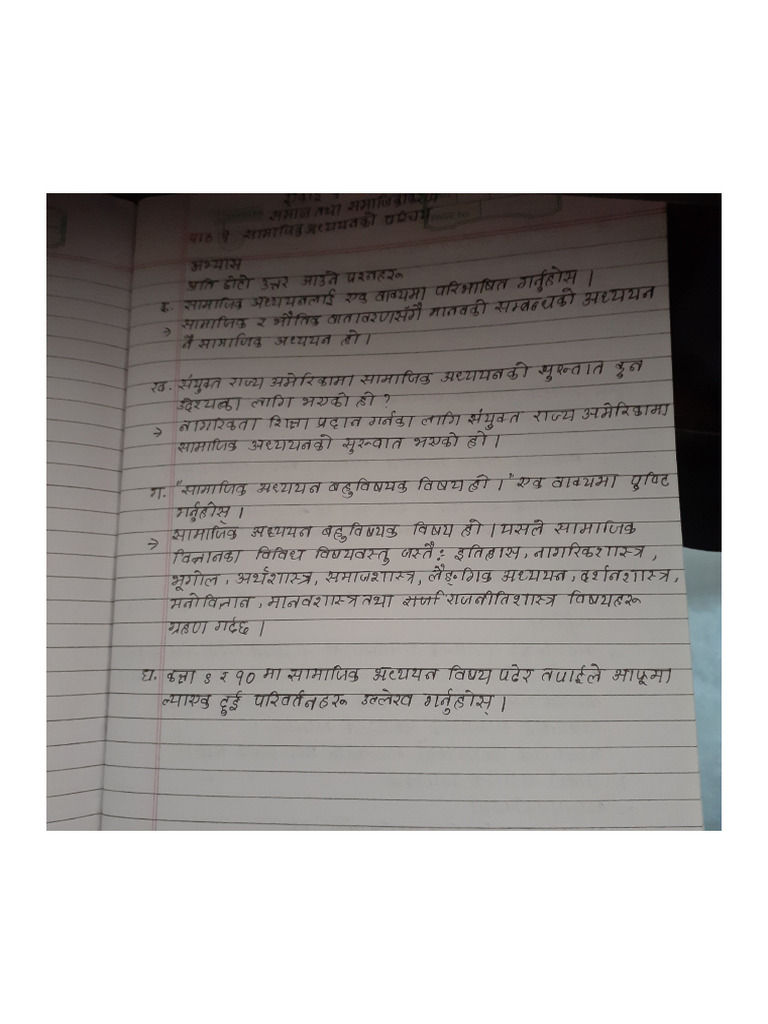 समाज तथा समाजिकीकरण
पाठ १ सामाजिक अध्ययनको परिचय
अभ्यास
अति छोटो उत्तर आउने प्रश्नहरू
क. सामाजिक अध्ययनलाई एक वाक्यमा परिभाषित गर्नुहोस् ।
→ सामाजिक र भौतिक वातावरणसँगै मानवको सम्बन्धको अध्ययन
नै सामाजिक अध्ययन हो ।
ख. संयुक्त राज्य अमेरिकामा सामाजिक अध्ययनको सुरुवात कुन
उद्देश्यका लागि भएको हो ?
→ नागरिकता शिक्षा प्रदान गर्नका लागि संयुक्त राज्य अमेरिकामा
सामाजिक अध्ययनको सुरुवात भएको हो ।
ग. "सामाजिक अध्ययन बहुविषयक विषय हो ।" एक वाक्यमा पुष्टि
गर्नुहोस् ।
→ सामाजिक अध्ययन बहुविषयक विषय हो । यसले सामाजिक
विज्ञानका विविध विषयवस्तु जस्तै : इतिहास, नागरिकशास्त्र,
भूगोल, अर्थशास्त्र, समाजशास्त्र, लैङ्गिक अध्ययन, दर्शनशास्त्र,
मनोविज्ञान, मानवशास्त्र तथा राजनीतिशास्त्र विषयहरू
ग्रहण गर्दछ ।
घ. कक्षा ९ र १० मा सामाजिक अध्ययन विषय पढेर तपाईंले आफूमा
ल्याएक दुई परिवर्तनहरू उल्लेख गर्नुहोस् ।